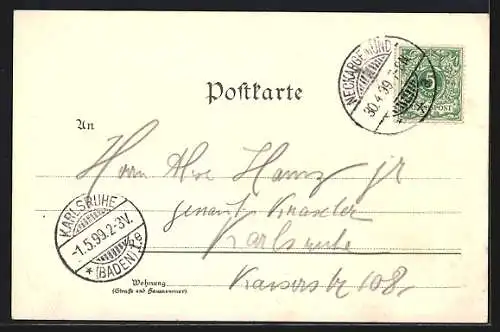 NECKARGEMÜND
30.4.99.
5
POST
Postkarte
An
Herrn Alve Hanz jr
genannt Knaseler
Karlsruhe
Kaiserstr 108
KARLSRUHE
-1.5.99.2-3V.
* (BADEN) 2e
Wohnung
(Straße und Hausnummer)